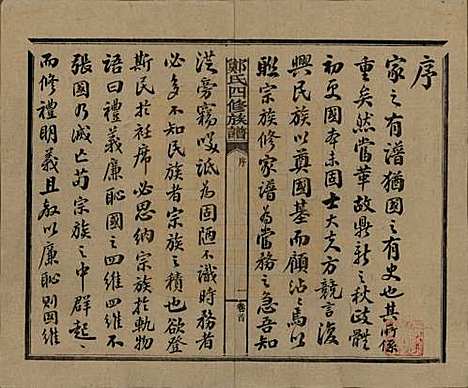 序
家之有譜猶國之有史也其所係
重矣然當革故鼎新之秋政體
初更國本未固士大夫方競言復
興民族以奠國基而顧沾沾焉以
聯宗族修家譜為當務之急吾知
鄭氏四修族譜
序
一
卷首
從旁竊嘆詆為固陋不識時務者
必多不知民族者宗族之積也欲登
斯民於衽席必思納宗族於軌物
語曰禮義廉恥國之四維四維不
張國乃滅亡苟宗族之中群起
而修禮明義且教以廉恥則四維